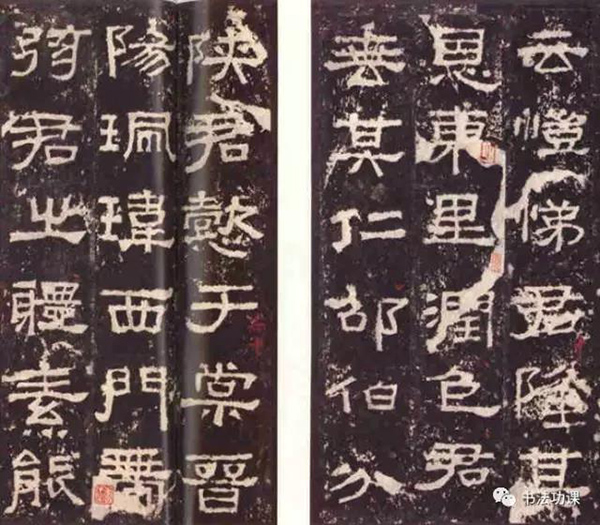 云愷悌君隆其
恩東里潤色君
垂其仁邵伯分
陝君懿于棠晉
陽珮瑋西門帶
弦君之體素能
书法功课